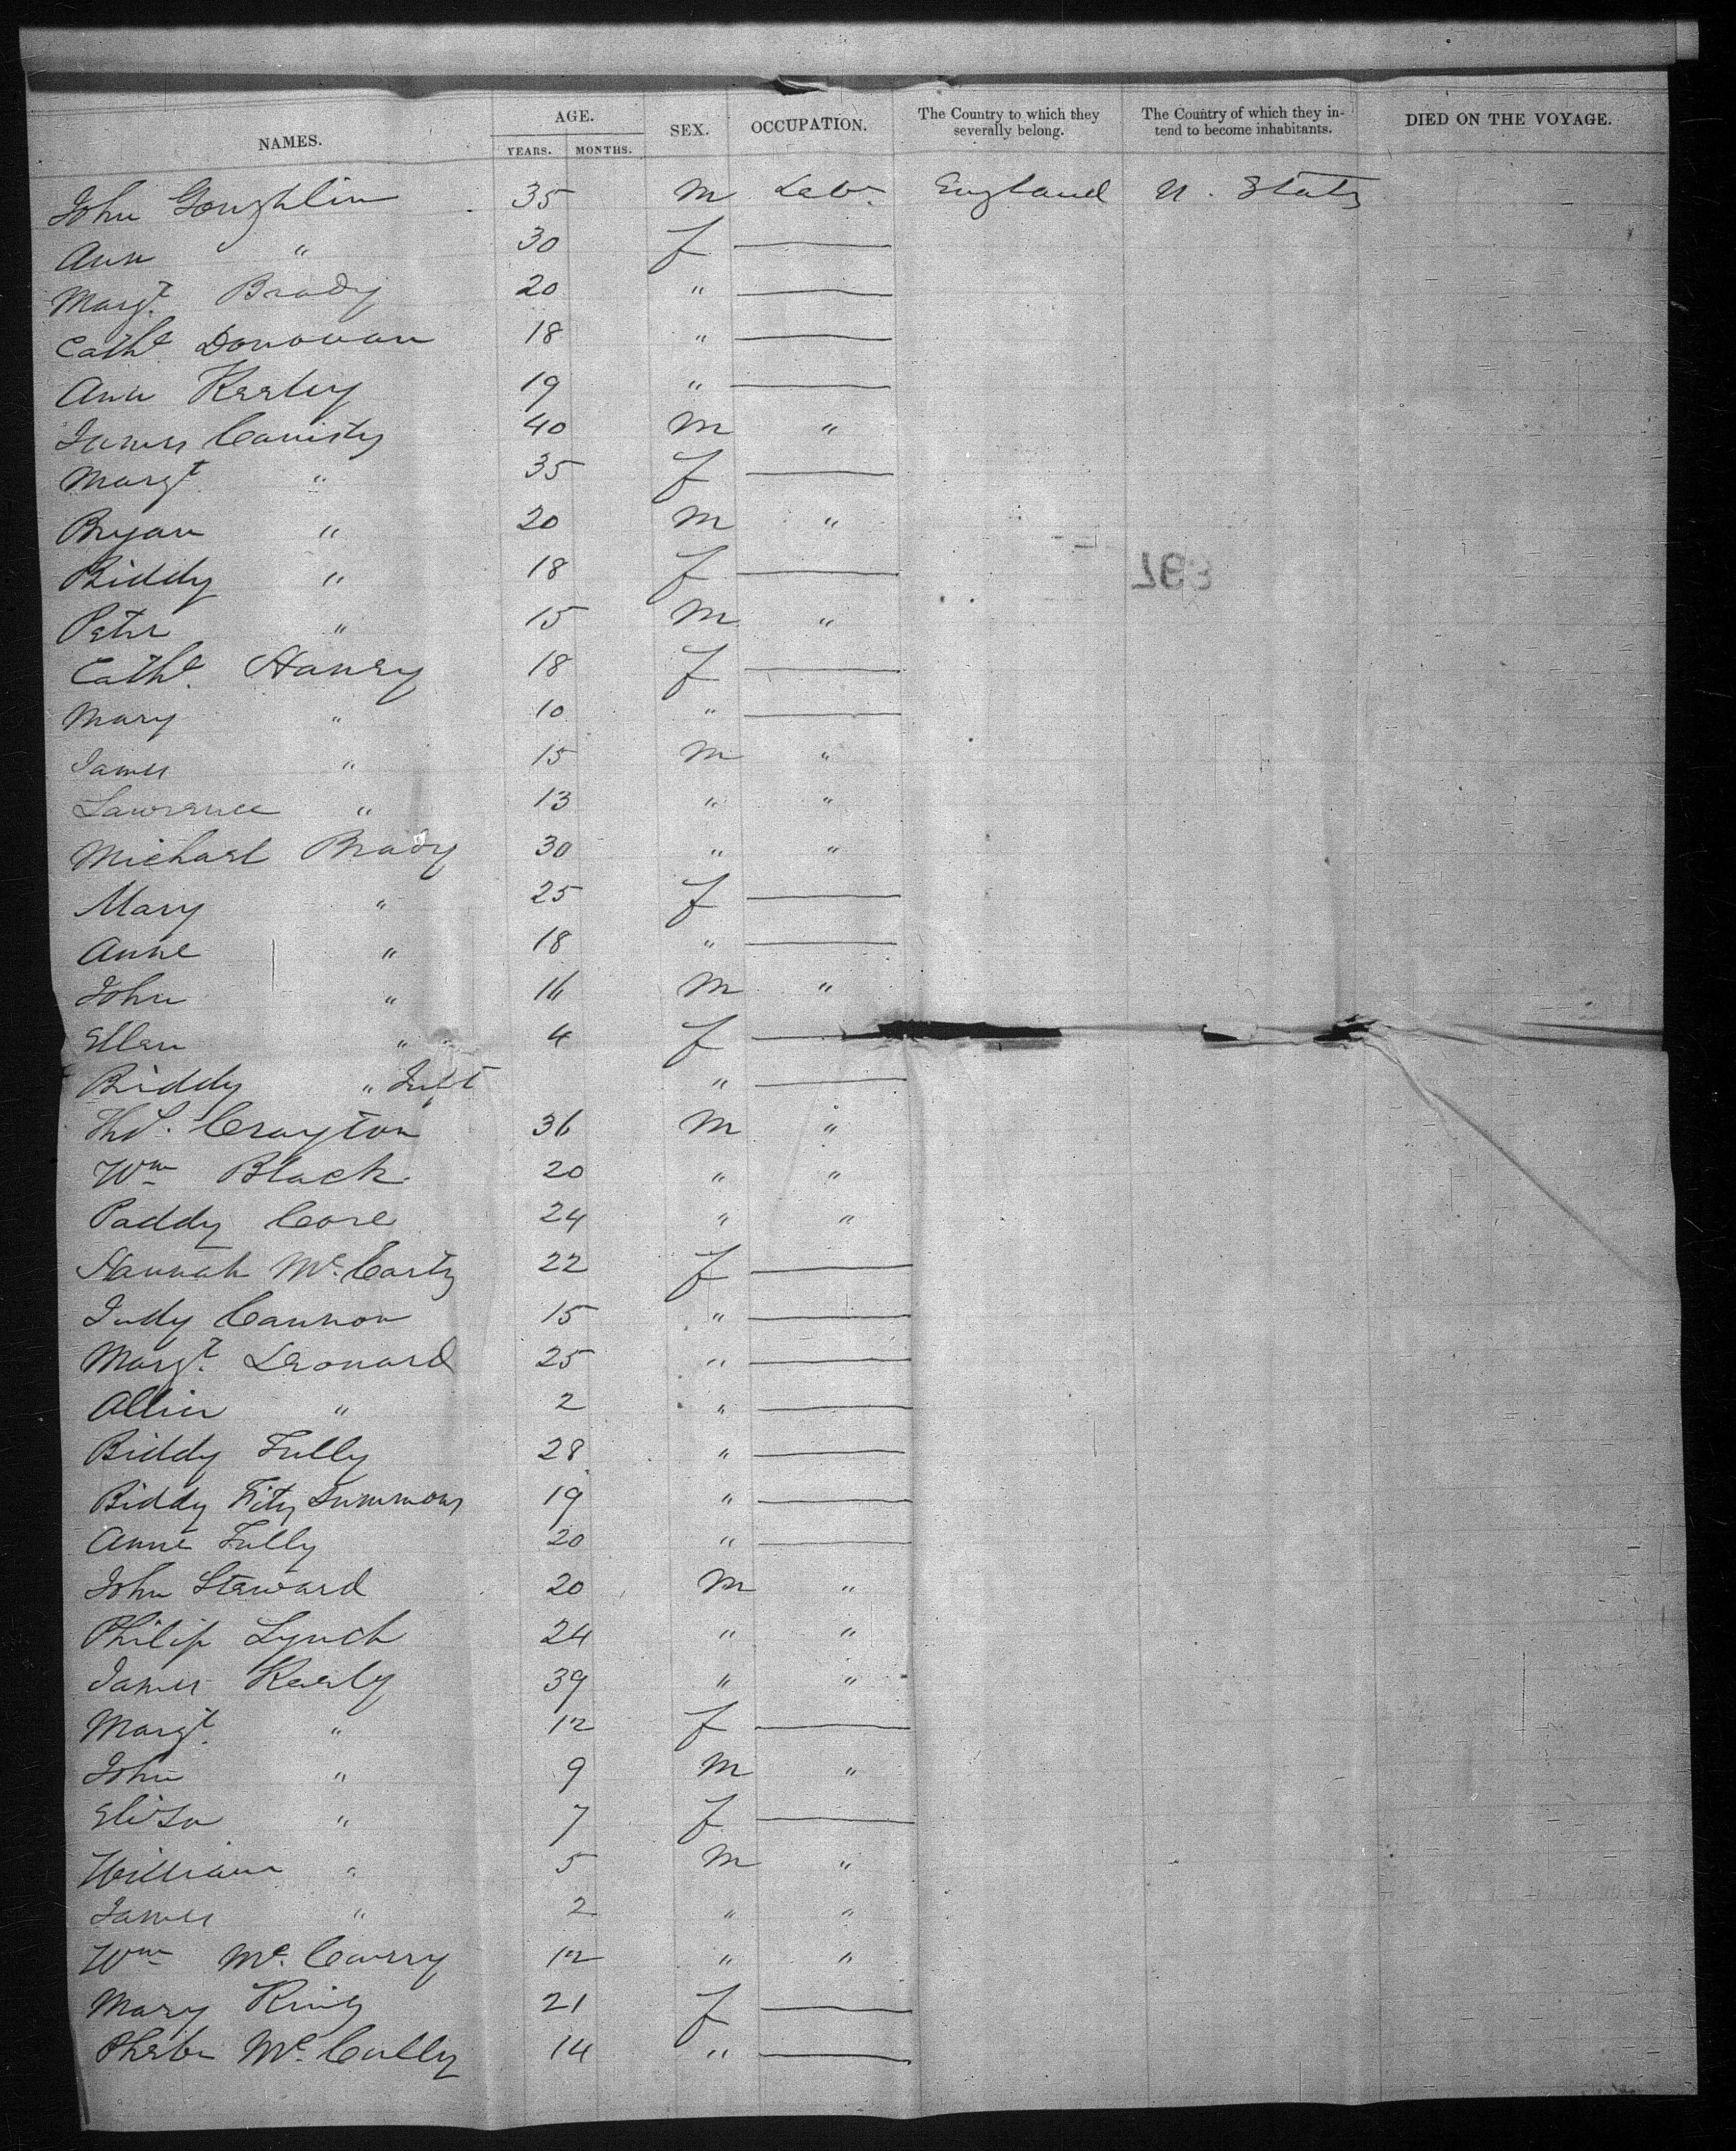 NAMES. AGE. SEX. OCCUPATION. The Country to which they severally belong. The Country of which they intend to become inhabitants. DIED ON THE VOYAGE.
YEARS. MONTHS.
John Goughlin 35 m Labr. England U. States
Ann " 30 f
Margt. Brady 20 "
Cathe Donovan 18 "
Ann 19 "
James 40 m "
Margt " 35 f
Bryan " 20 m "
Biddy " 18 f
Peter " 15 m "
Cathe. Haney 18 f
Mary " 10 "
James " 15 m "
Lawrence " 13 " "
Michael Brady 30 " "
Mary " 25 f
Anne " 18 "
John " 16 m "
Ellen " 4 f
Biddy " Inft "
Thos. Crayton 36 m "
Wm Black 20 " "
Paddy 24 " "
Hannah Mc. Carty 22 f
Judy Cannon 15 "
Margt. Leonard 25 "
" 2 "
Biddy Tully 28 "
Biddy Fitz Summons 19 "
Anne Tully 20 "
John Steward 20 m "
Philip Lynch 24 " "
James 39 " "
Margt. " 12 f
John " 9 m "
Eliza " 7 f
William " 5 m "
James " 2 " "
Wm Mc. Curry 12 " "
Mary King 21 f
Phebe Mc. Cully 14 "